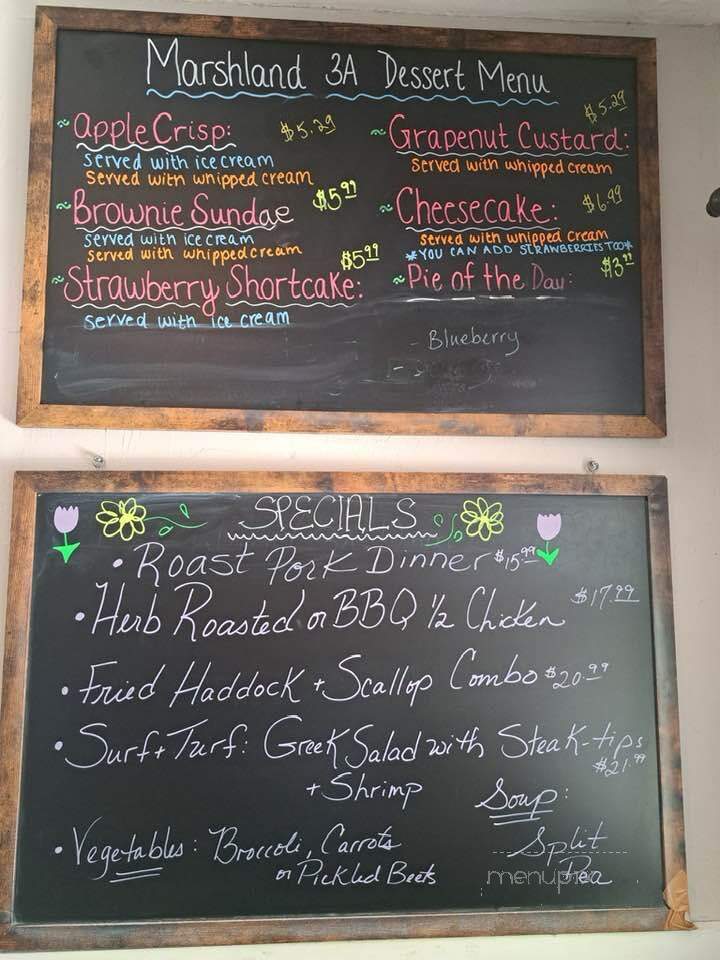 Marshland 3A Dessert Menu
~ Apple Crisp: $5.29
served with ice cream
served with whipped cream
~ Brownie Sundae $5.99
served with ice cream
served with whipped cream
~ Strawberry Shortcake: $5.99
served with ice cream
~ Grapenut Custard: $5.29
served with whipped cream
~ Cheesecake: $6.99
served with whipped cream
*YOU CAN ADD STRAWBERRIES TOO*
~ Pie of the Day: $3.99
- Blueberry
-
SPECIALS
• Roast Pork Dinner $15.99
• Herb Roasted or BBQ 1/2 Chicken $17.99
• Fried Haddock + Scallop Combo $20.99
• Surf + Turf: Greek Salad with Steak-tips
+ Shrimp $21.99
• Vegetables: Broccoli, Carrots
or Pickled Beets
Soup:
Split
Pea
menupix